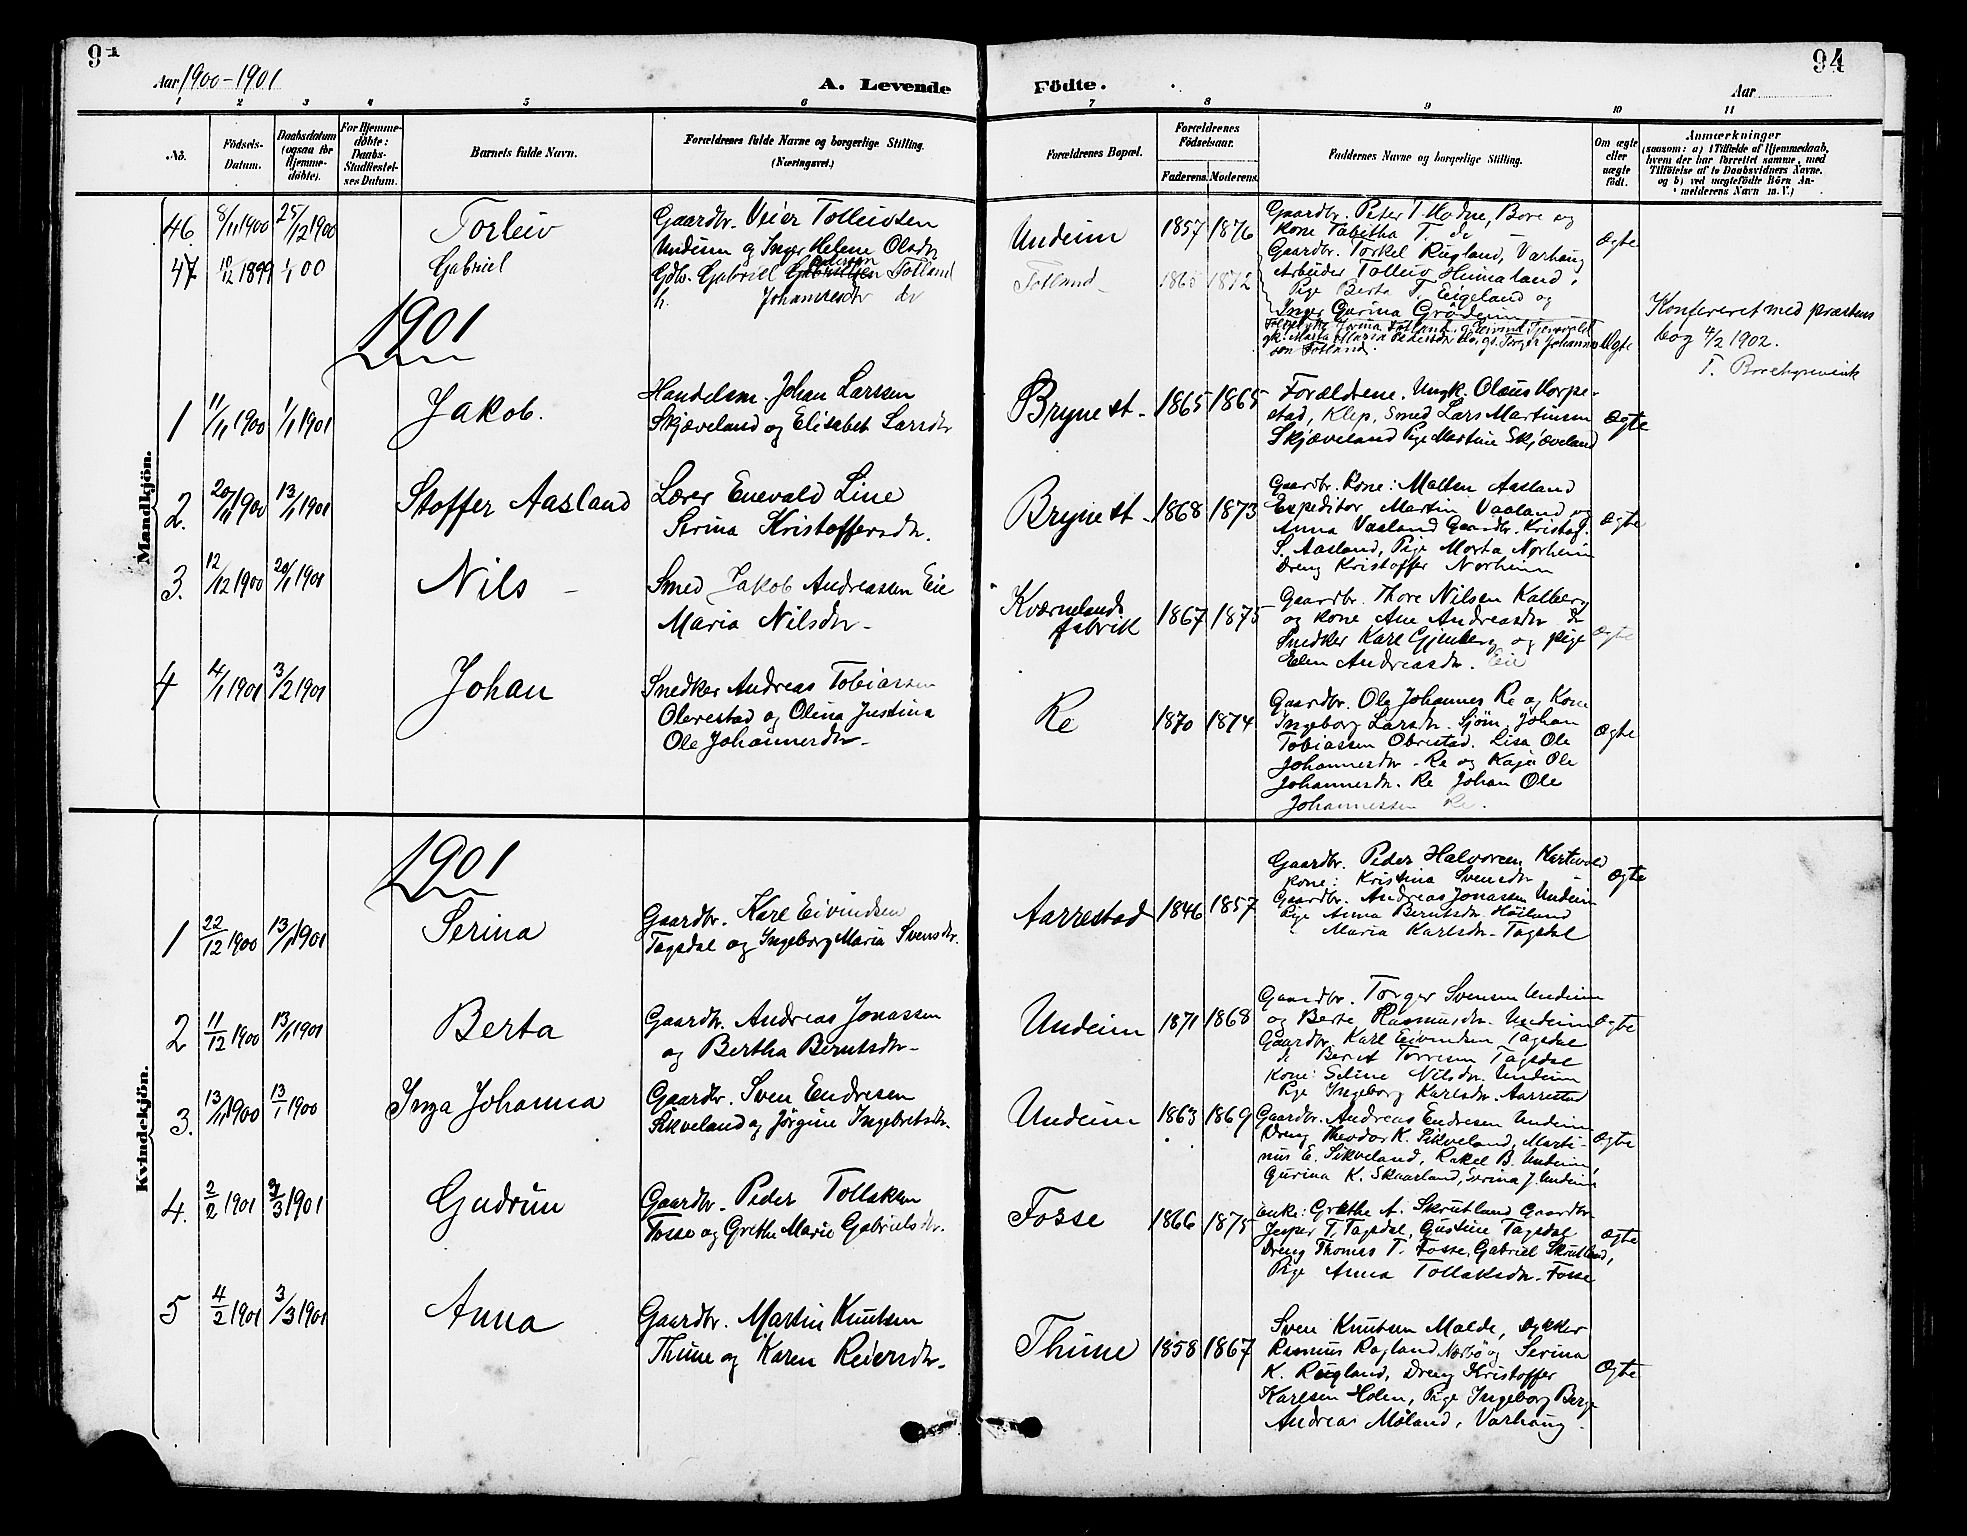 94
94
Aar 1900-1901
A. Levende Födte.
Aar
1 2 3 4 5 6 7 8 9 10 11
No.
Födsels-Datum.
Daabsdatum (ogsaa for Hjemme-döbte).
For Hjemme-döbte: Daabs-Stadfæstel-ses Datum.
Barnets fulde Navn.
Forældrenes fulde Navne og borgerlige Stilling. (Næringsvei.)
Forældrenes Bopæl.
Forældrenes Födselsaar.
Faderens. Moderens.
Faddernes Navne og borgerlige Stilling.
Om ægte eller uægte födt.
Anmærkninger
(saasom: a) i Tilfælde af Hjemmedaab, hvem der har forrettet samme, med Tilföielse af to Daabsvidners Navne. og b) ved uægtefödte Börn An-melderens Navn m. V.)
Mandkjön.
46. 8/11 1900 25/12 1900 Torleiv
Gaardbr. Veier Tolleivsen
Undeim og Inger Helene Olsdr
Undeim 1857 1876
Gaardbr. Peter T. Hodne, Bore og
kone Tabitha T. do
Gaardbr. Torkel Rugland, Varhaug
Arbeider Tolleiv Heimaland,
Pige Berta T. Eigeland og
Inger Gurina Gröderim
Ægte
47 10/12 1899 1/1 00 Gabriel
Gdb. Gabriel Gabrielsen Pedersen Totland
h. Johannesdr do
Totland 1865 1872
Ægte
Konfereret med præstens
bog 4/2 1902.
T. Borchgrevink
1901
1 11/11 1900 1/1 1901 Jakob.
Handelsm. Johan Larsen
Skjæveland og Elisabet Larsdr
Bryne st. 1865 1865
Forældrene. Ungk. Olaus Horpe-
stad, Klep, Smed Lars Martinsen
Skjæveland Pige Martine Skjæveland
Ægte
2. 20/11 1900 13/1 1901 Stoffer Aasland
Lærer Enevald Line
Serina Kristoffersdr.
Bryne st. 1868 1873
Gaardbr. kone: Mallen Aasland
Expeditor Martin Vaaland og
Anna Vaaland Gaardbr. Kristof.
S. Aasland, Pige Marta Norheim
Dreng Kristoffer Norheim
Ægte
3. 12/12 1900 20/1 1901 Nils
Smed Jakob Andreassen Eie
Maria Nilsdr.
Kværnelands
fabrik 1867 1875
Gaardbr. Thore Nilsen Kalberg
og kone Ane Andreasdr do
Snedker Karl Gjenberg og pige
Elen Andreasdr. Eie
Ægte
4 4/1 1901 3/2 1901 Johan
Snedker Andreas Tobiassen
Obrestad og Olina Justina
Ole Johannesdr.
Re 1870 1874
Gaardbr. Ole Johannes Re og Kone
Ingeborg Larsdr. Sjöm. Johan
Tobiassen Obrestad. Lisa Ole
Johannesdr. Re og Kaja Ole
Johannesdr. Re Johan Ole
Johannessen Re.
Ægte
Kvindekjön.
1901
1 22/12 1900 13/1 1901 Serina
Gaardbr. Karl Eivindsen
Tagsdal og Ingeborg Maria Svensdr.
Aarrestad 1846 1857
Gaardbr. Peder Halvorsen
kone: Kristina Svensdr
Gaardbr. Andreas Jonassen Undeim
Pige Anna Berntsdr. Höiland
Maria Karlsdr. Tagsdal
Ægte
2 11/12 1900 13/1 1901 Berta
Gaardbr. Andreas Jonassen
og Bertha Berntsdr.
Undeim 1871 1868
Gaardbr. Torger Svensen Undeim
og Berta Rasmusdr. Undeim
Gaardbr. Karl Eivindsen Tagsdal
Tagsdal
Kone: Seline Nilsdr. Undeim
Pige Ingeborg Karlsdr. Aarrestad
Ægte
3. 13/11 1900 13/1 1900 Inga Johanna
Gaardbr. Sven Endresen
Sikveland og Jørgine Ingebretsdr.
Undeim 1863 1869
Gaardbr. Andreas Endresen Undeim
Dreng Theodor K. Sikveland, Marti-
nus E. Sikveland, Rakel B. Undeim,
Gurina K. Skaarland, Serina J. Undeim
Ægte
4. 2/2 1901 3/3 1901 Gudrun
Gaardbr. Peder Tollaksen
Fosse og Grethe Marie Gabrielsdr.
Fosse 1866 1875
Enke: Grethe A. Skrutland Gaardbr
Jesper T. Tagsdal, Gustine Tagsdal
Dreng Thomas T. Fosse, Gabriel Skrutland,
Pige Anna Tollaksdr. Fosse
Ægte
5 4/2 1901 3/3 1901 Anna
Gaardbr. Martin Knutsen
Thime og Karen Reiersdr.
Thime 1858 1867
Sven Knutsen Malde, Dykker
Rasmus Rogland Nærbö og Serina
K. Rugland, Dreng Kristoffer
Karlsen Holen, Pige Ingeborg Berge
Andreas Möland, Varhaug
Ægte